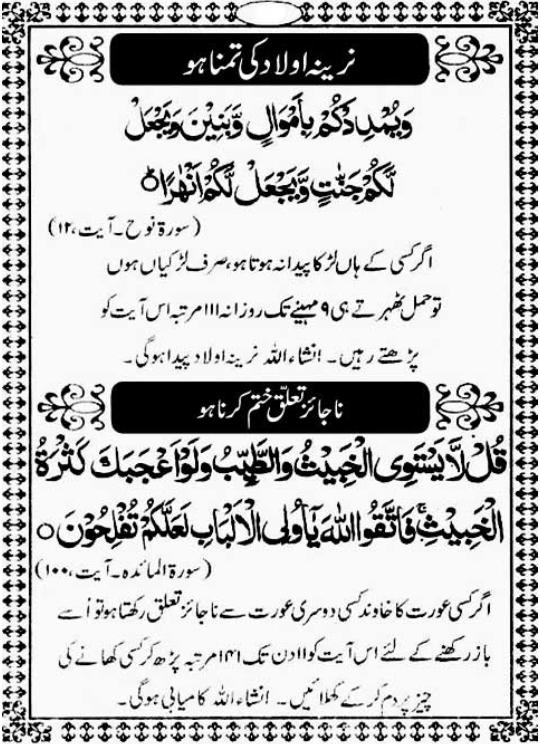 نرینہ اولاد کی تمنا ہو
وَيُمْدِدْكُمْ بِاَمْوَالٍ وَّبَنِيْنَ وَيَجْعَلْ
لَّكُمْ جَنّٰتٍ وَّيَجْعَلْ لَّكُمْ اَنْهٰرًا ؕ
(سورۃ نوح۔ آیت، ۱۲)
اگر کسی کے ہاں لڑکا پیدا نہ ہوتا ہو، صرف لڑکیاں ہوں
تو حمل ٹھہرتے ہی ۹ مہینے تک روزانہ ۱۱۱ مرتبہ اس آیت کو
پڑھتے رہیں۔ انشاء اللہ نرینہ اولاد پیدا ہوگی۔
ناجائز تعلّق ختم کرنا ہو
قُلْ لَّا يَسْتَوِى الْخَبِيْثُ وَالطَّيِّبُ وَلَوْ اَعْجَبَكَ كَثْرَةُ
الْخَبِيْثِ ۚ فَاتَّقُوا اللّٰهَ يٰٓاُولِى الْاَلْبَابِ لَعَلَّكُمْ تُفْلِحُوْنَ ○
(سورۃ المائدہ۔ آیت، ۱۰۰)
اگر کسی عورت کا خاوند کسی دوسری عورت سے ناجائز تعلق رکھتا ہو تو اُسے
باز رکھنے کے لئے اس آیت کو ۱۱ دن تک ۱۴۱ مرتبہ پڑھ کر کسی کھانے کی
چیز پر دم کر کے کھلائیں۔ انشاء اللہ کامیابی ہوگی۔